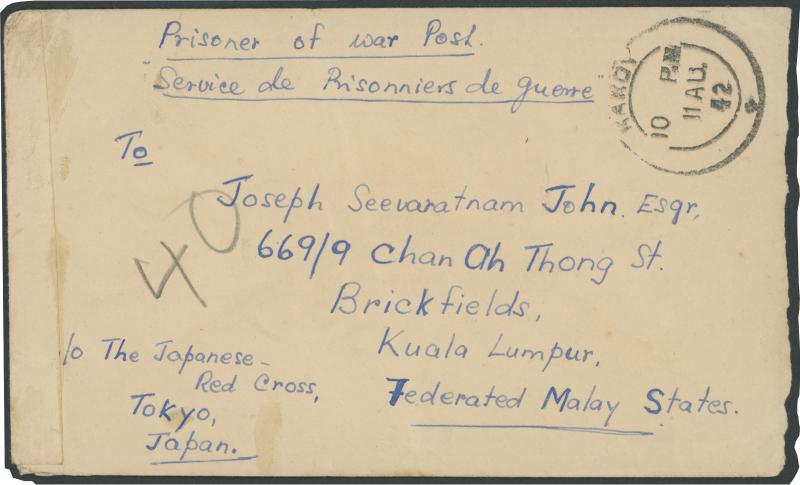 Prisoner of war Post.
"Service de Prisonniers de guerre"
KANDY
10 P.M
11 AU.
42
To
Joseph Seevaratnam John Esqr,
669/9 Chan Ah Thong St.
Brickfields,
Kuala Lumpur,
Federated Malay States.
40
/o The Japanese-
Red Cross,
Tokyo,
Japan.